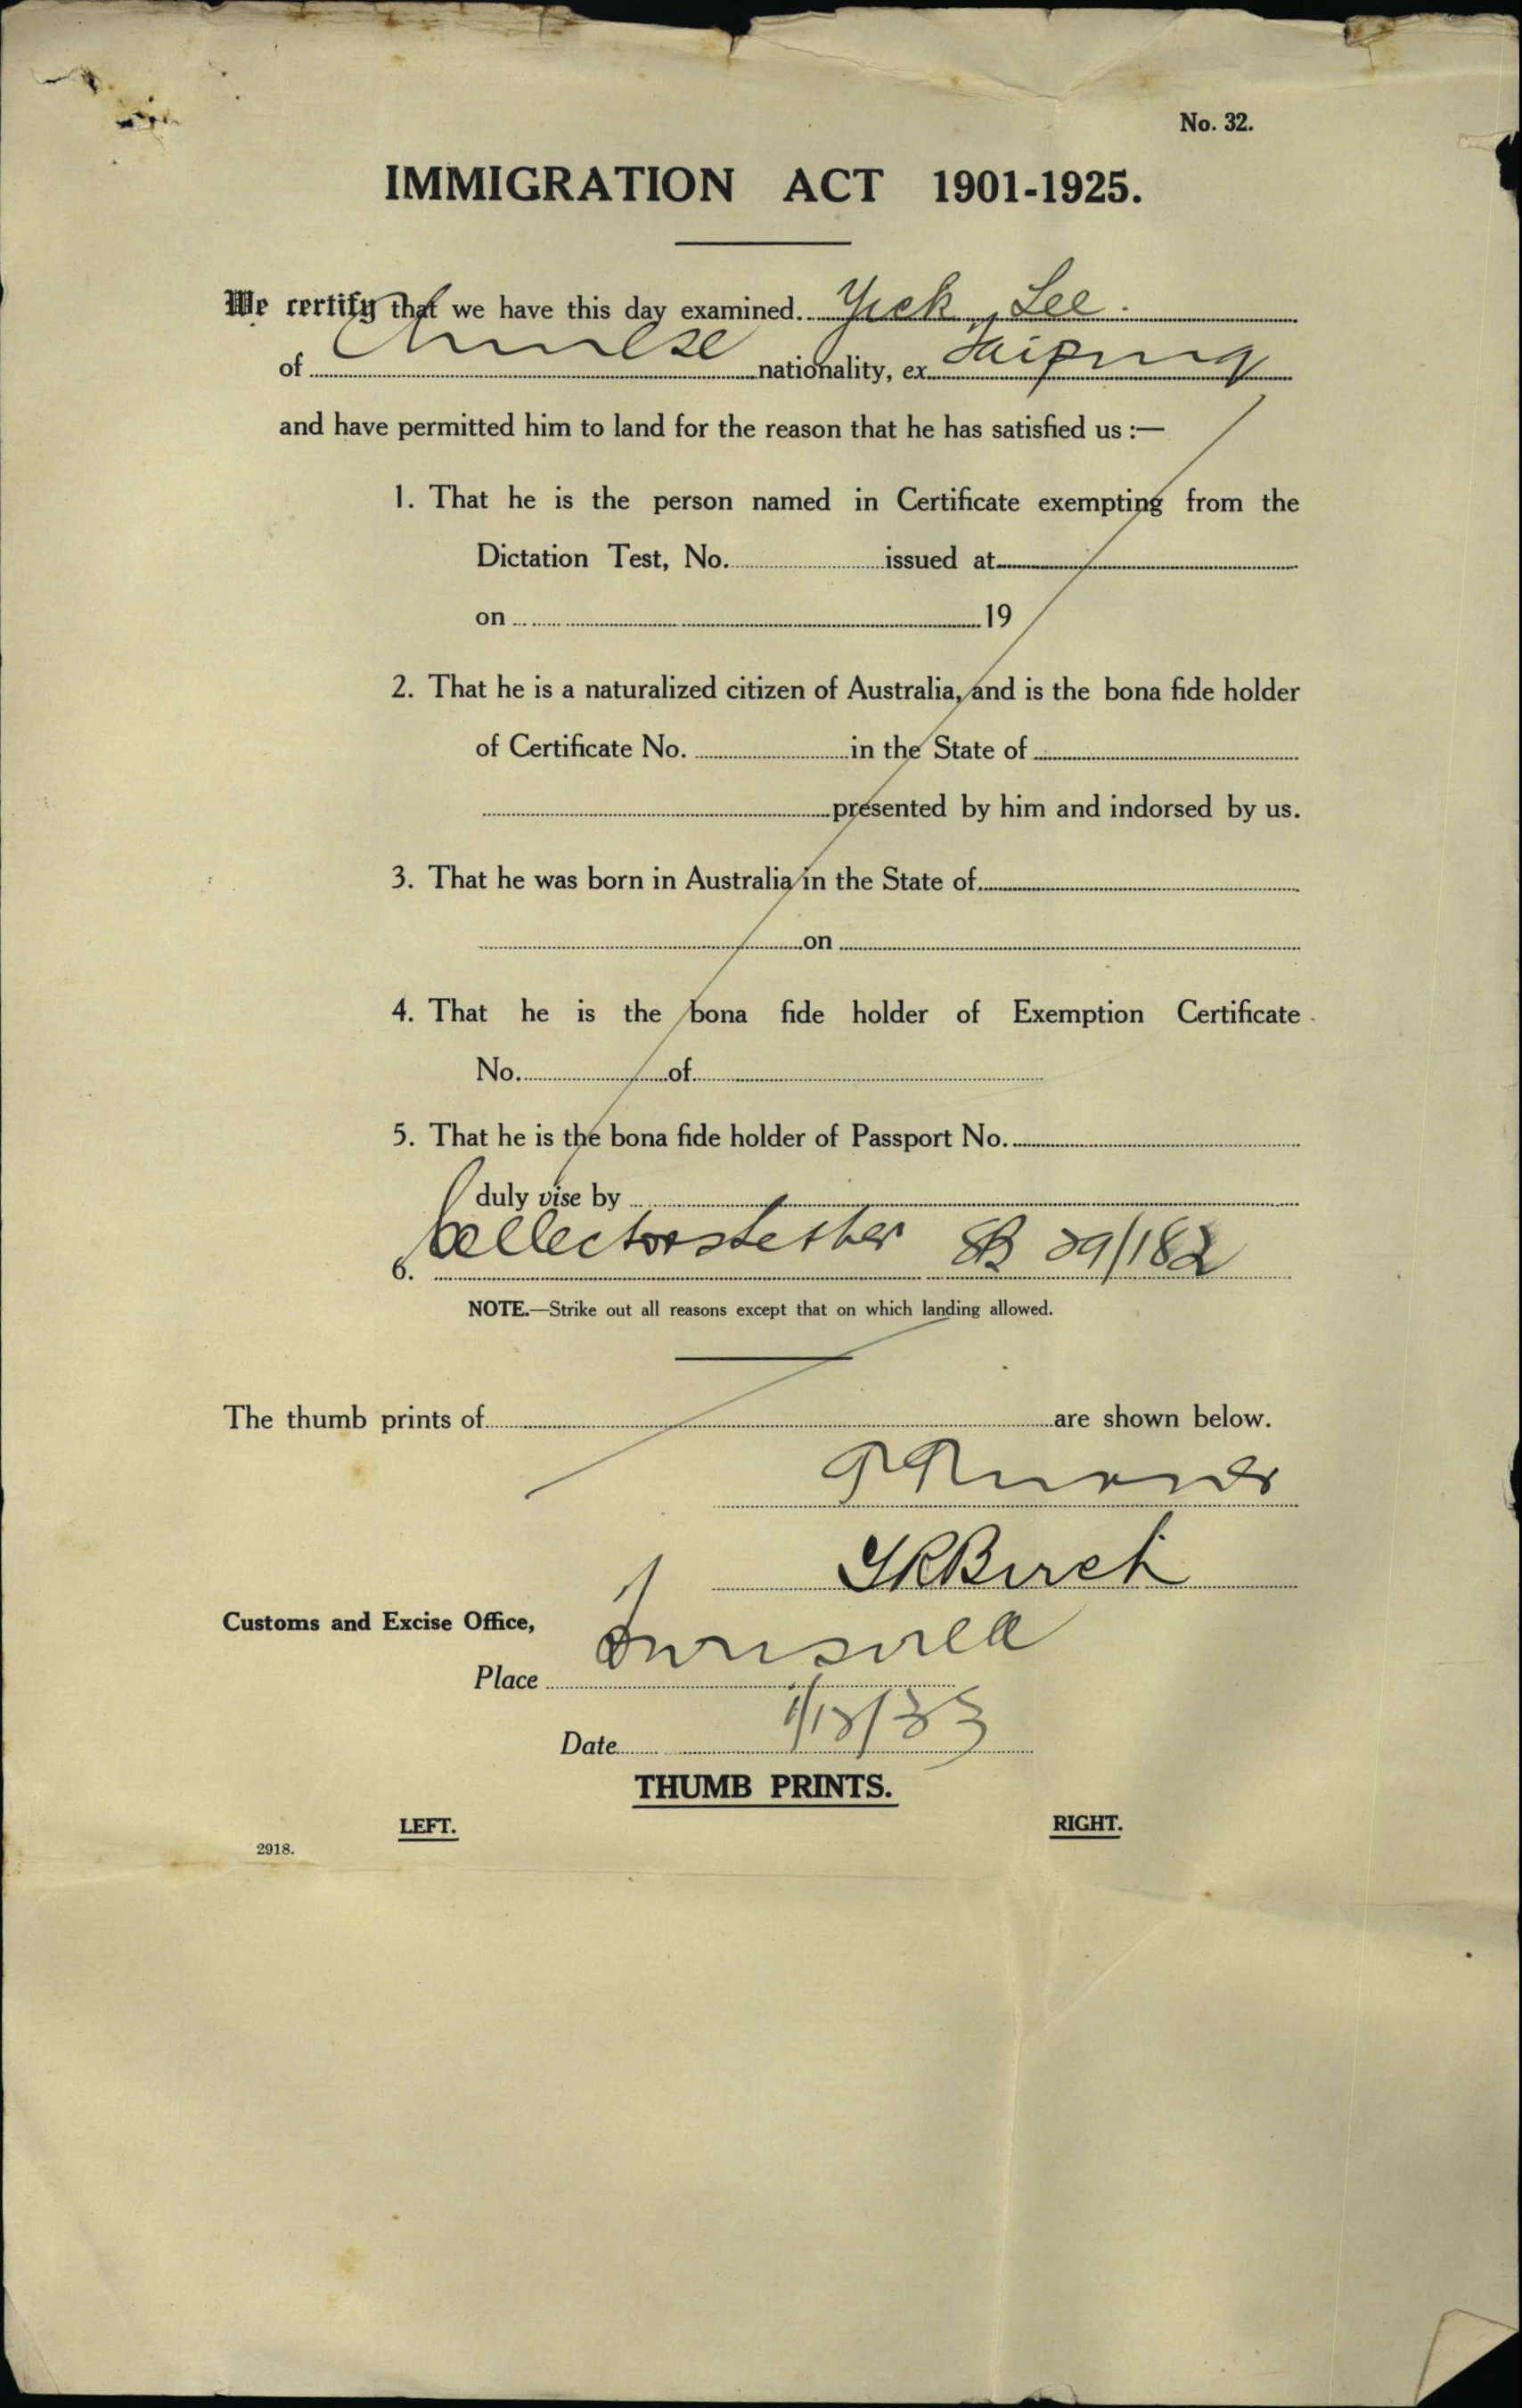 No. 32.
IMMIGRATION ACT 1901-1925.
We certify that we have this day examined Yick Lee.
of Chinese nationality, ex Taiping
and have permitted him to land for the reason that he has satisfied us :—
1. That he is the person named in Certificate exempting from the
Dictation Test, No. issued at
on 19
2. That he is a naturalized citizen of Australia, and is the bona fide holder
of Certificate No. in the State of
presented by him and indorsed by us.
3. That he was born in Australia in the State of
on
4. That he is the bona fide holder of Exemption Certificate
No. of
5. That he is the bona fide holder of Passport No.
duly vise by
6. Collectors letter 29/182
NOTE.—Strike out all reasons except that on which landing allowed.
The thumb prints of are shown below.
Birch
Customs and Excise Office,
Place
Date
THUMB PRINTS.
LEFT. RIGHT.
2918.